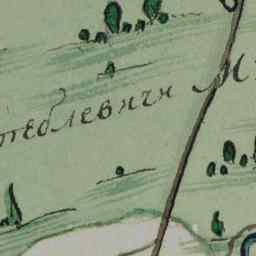 теблевичи М